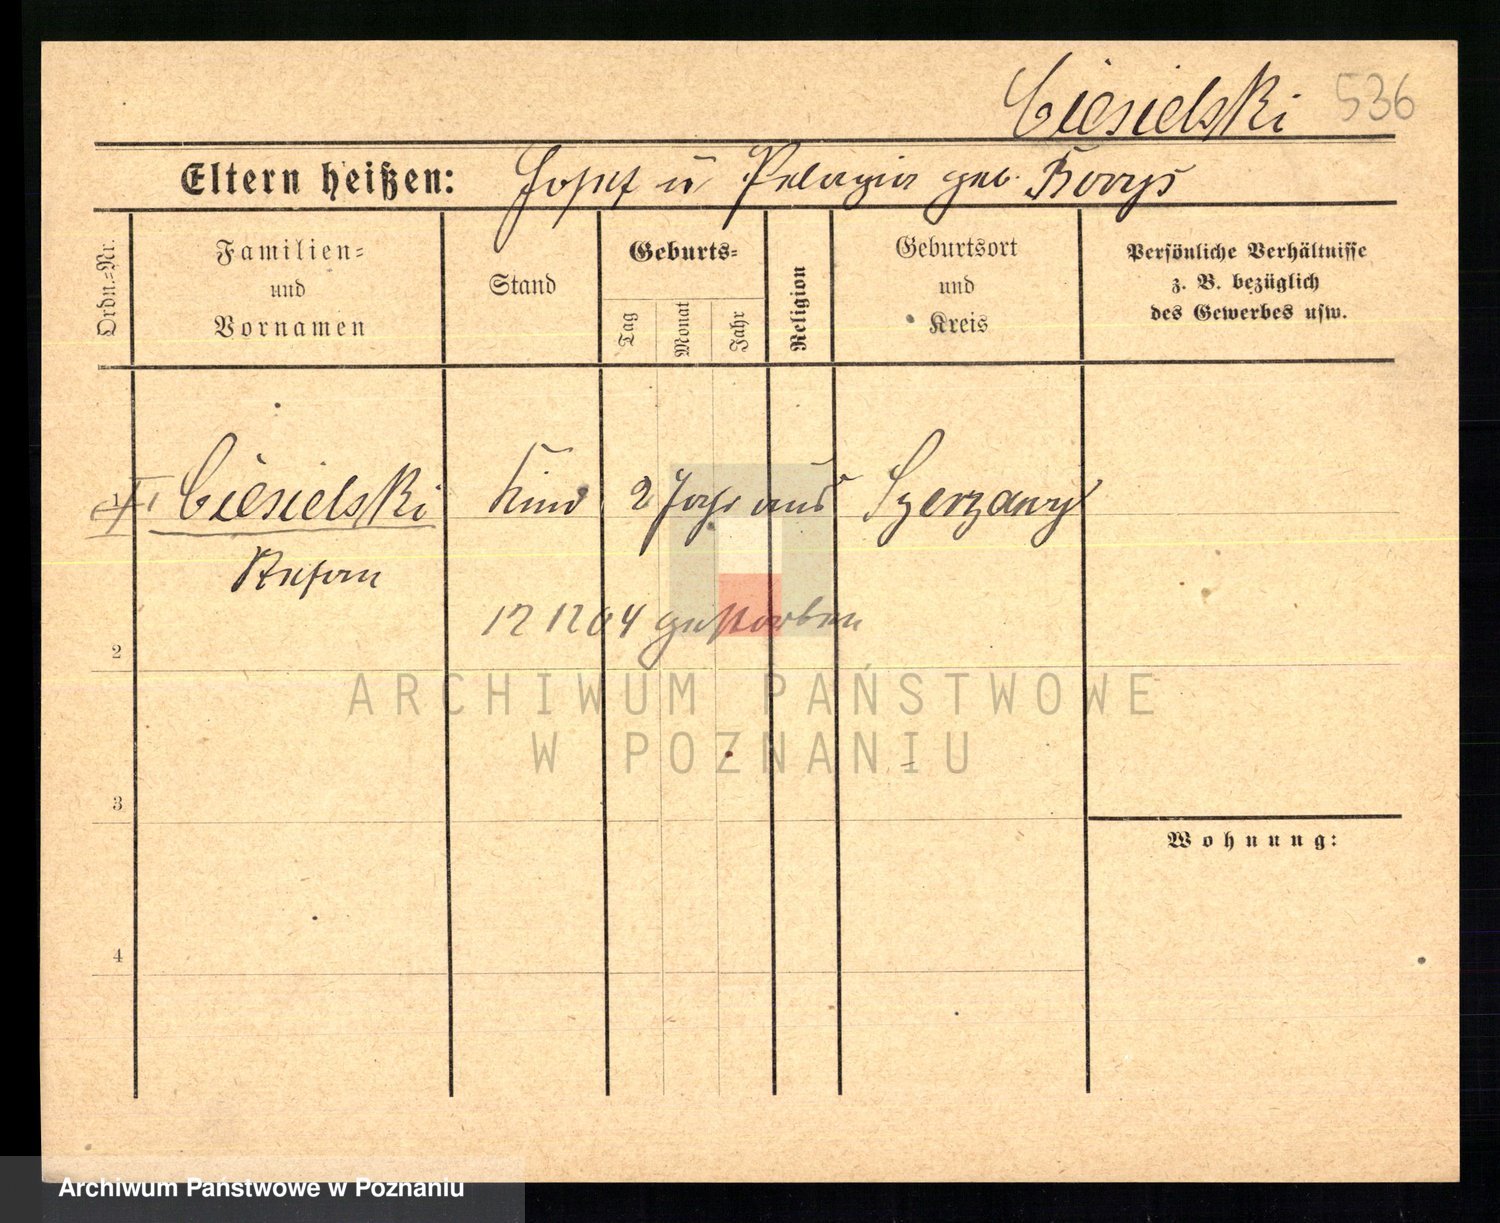 Ciesielski 536
Eltern heißen: Josef u Pelagia geb.
Ordn.-Nr.
Familien-
und
Vornamen
Stand
Geburts-
Tag
Monat
Jahr
Religion
Geburtsort
und
Kreis
Persönliche Verhältnisse
z. B. bezüglich
des Gewerbes usw.
Ciesielski Kind 2 Jahr aus
Stefan
12 12 04 gestorben
2
ARCHIWUM PAŃSTWOWE
W POZNANIU
3
Wohnung:
4
Archiwum Państwowe w Poznaniu